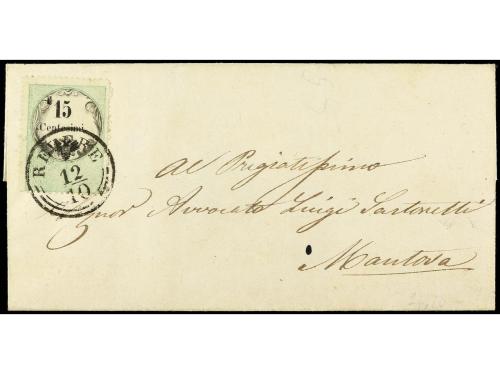 15
Centesimi
REVERE
12
10
Al Pregiatissimo
Signor Avvocato Luigi Sartoretti
Mantova